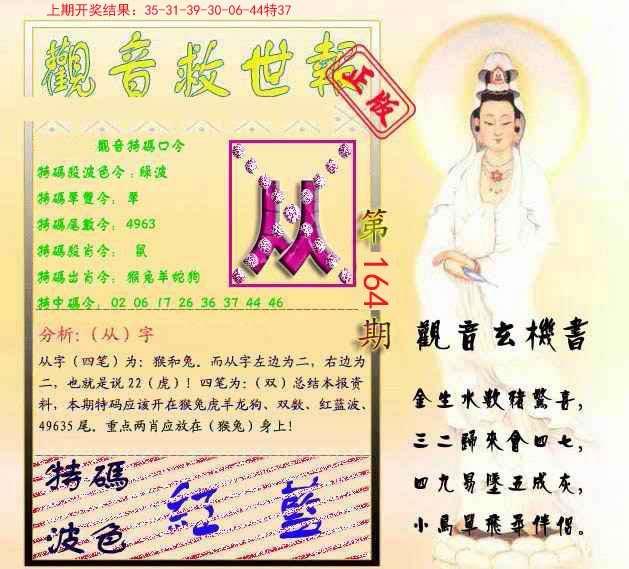 上期开奖结果：35-31-39-30-06-44特37
觀音救世報
正版
觀音特碼口令
特碼段波色令：綠波
特碼單雙令：單
特碼尾數令：4963
特碼段肖令：鼠
特碼出肖令：猴兔羊蛇狗
特中碼令：02 06 17 26 36 37 44 46
从
第164期
分析:（从）字
从字（四笔）为：猴和兔。而从字左边为二，右边为
二，也就是说22（虎）！四笔为：（双）总结本报资
料，本期特码应该开在猴兔虎羊龙狗、双数、红蓝波、
49635尾。重点两肖应放在（猴兔）身上！
特碼
波色
紅藍
觀音玄機書
金生水數豬驚喜，
三二歸來會四七，
四九易墜五成灰，
小鳥單飛尋伴侶。